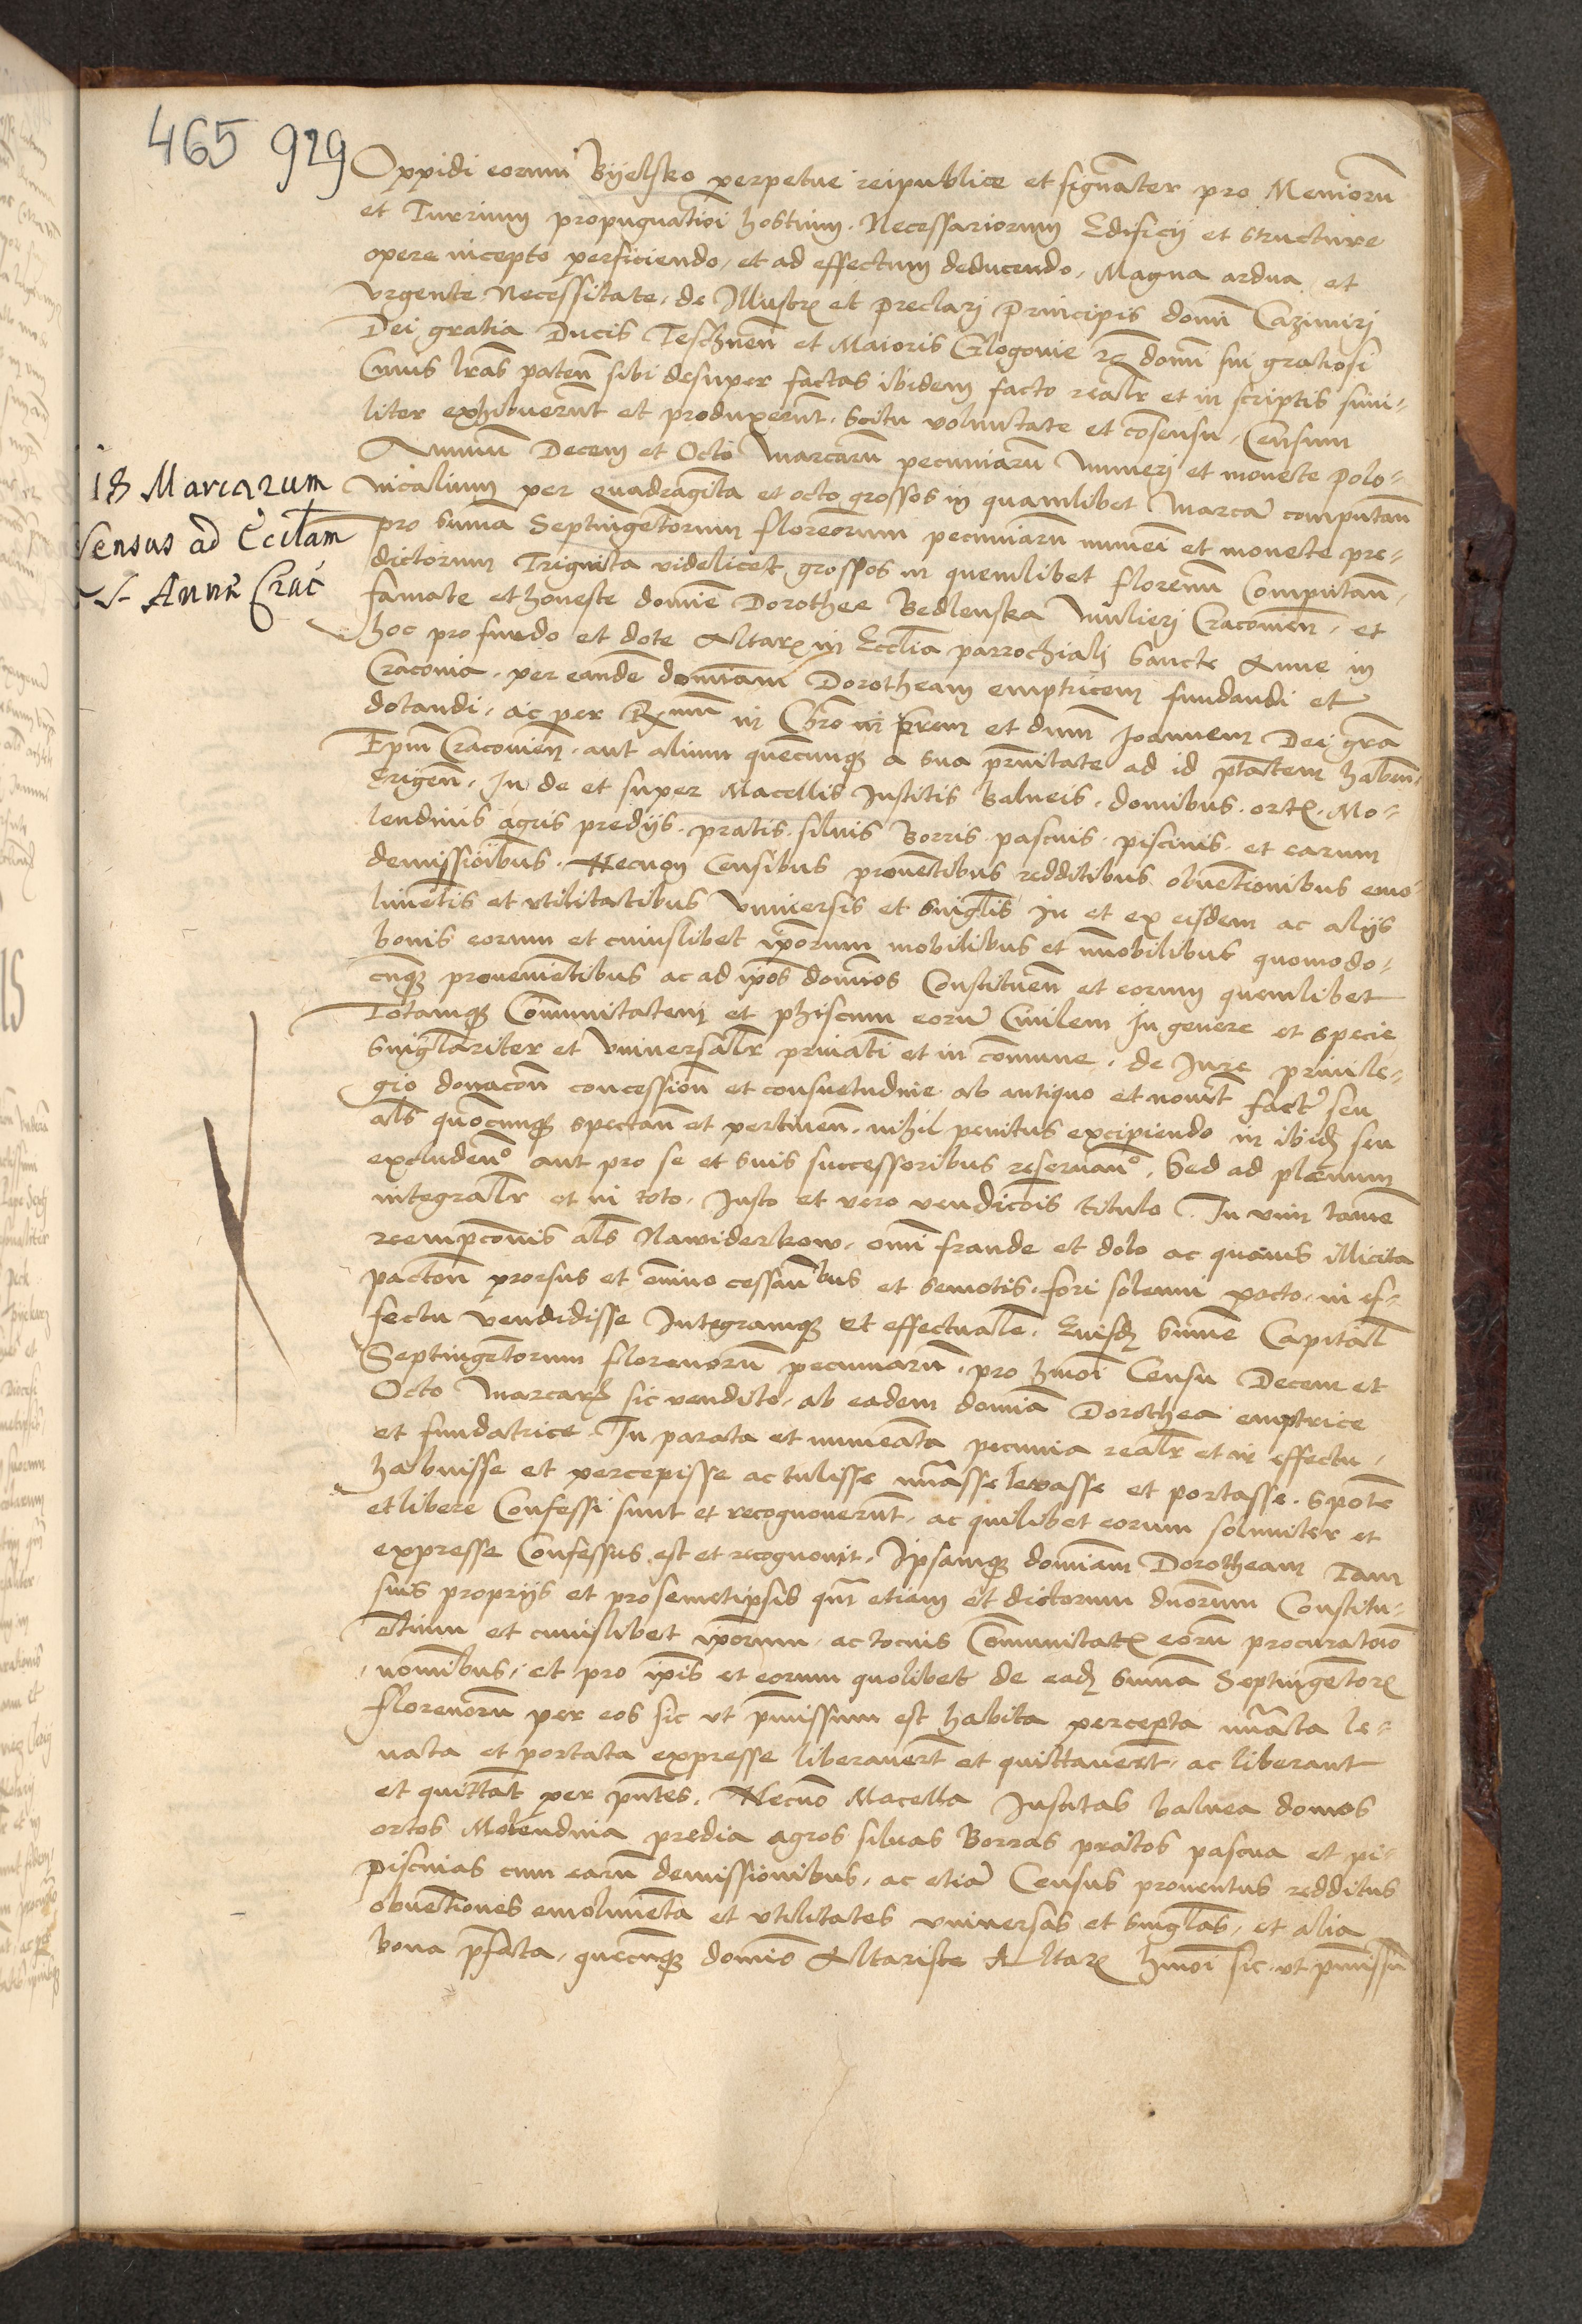 465 929
Oppidi eorum Byelsko perpetue reipublice et signãter pro Meniorũ
et Turrium propugnatiõi hostium Necessariorum Edificij et structure
opere incepto perficiendo, et ad effectum deducendo, Magna ardua et
vrgente Necessitate, de Illustrꝭ et preclarj Principis domĩ Cazimirj
Dei gratia Ducis Teschneñ et Maioris Glogouie &c domĩ sui gratiosi
Cuius lrãs pateñ sibi desuper factas ibidem facto realr̃ et in scriptis simi-
liter exhibuerũt et produxerũt, scitu voluntate et cõsensu, Censum
Annuũ Decem et Octo Marcarũ pecuniarũ numerj et monete Polo-
nicalium per quadragĩta et octo grossos in quamlibet Marcã computañ
pro summa Septingẽtorum florẽorum pecuniarũ numẽi et monete pre-
dictorum Triginta videlicet grossos in quemlibet florenũ Computañ,
famate et honeste domĩe Dorothee Bedlenska Mulierj Cracouieñ, et
hoc pro fundo et dote Altarꝭ in Ecclĩa parrochialj Sancte Anne in
Cracouia, per eandẽ domĩam Dorotheam emptricem fundandi et
dotandi, ac per Rmum in Chrõ in prem et dnum Joannem Dei grã
Epm̃ Cracouieñ, aut alium quẽcunq̃ a sua prñitate ad id ptãtem habeñ,
erigeñ, In de et super Macellis Institis Balneis, domibus, ortꝭ, Mo-
lendinis agris predijs, pratis, siluis Borris pascuis, piscinis, et earum
demissiõibus. Necnon Censibus prouẽtibus redditibus obuẽtionibus emo-
limẽtis et vtilitatibus vniuersis et singlĩs In et ex eisdem ac alijs
bonis eorum et cuiuslibet ipõrum mobilibus et ĩmobilibus quomodo-
cũq̃ prouenĩẽtibus ac ad ipõs domĩos Constitueñ et eorum quemlibet
Totamq̃ Cõmunitatem et phiscum eorũ Ciuilem In genere et specie
singlãriter et Vniuersalr̃ priuatĩ et in cõmune, de Jure priuile-
gio donacoñ concessioñ et consuetudine ab antiquo et nouit̃ fact̃ seu
alš quocũnq̃ spectañ et pertineñ, nihil penitus excipiendo in ibidꝫ seu
excludeño aut pro se et suis successoribus reseruaño, Sed ad plenum
integralr̃ et in toto, Justo et vero vendicõis titulo, In vim tamẽ
reempcõnis alš Nawiderkow, omĩ fraude et dolo ac quauis illicita
pactoñ prorsus et õmino cessañbus et semotis, fori solenni pacto, in ef-
fectu vendidisse Integramq̃ et effectualẽ, Euisdꝫ summe Capitaľ
Septingẽtorum florenorũ pecuniarũ, pro hmoĩ Censu Decem et
Octo Marcarꝭ sic vendito, ab eadem domĩa Dorothea emptrice
et fundatrice, In parata et numeãta pecunia realr̃ et in effectu,
habuisse et percepisse ac tulisse nũasse leuasse et portasse, spõte
et libere Confessi sunt et recognouerũt, ac quilibet eorum solenniter et
expresse Confessus est et recognouit, Ipsamq̃ domĩam Dorotheam Tam
suis proprijs et pro semetipsis qm̃ etiam et dictorum duorum Constitu-
ẽtium et cuiuslibet ipõrum, ac tocius Cõmunitatꝭ eorũ procuratoio
nomĩbus, et pro ipĩs et eorum quolibet de eadꝫ summa Septingẽtorꝭ
florenorũ per eos sic vt pmissum est habita percepta nũata le-
uata et portata expresse liberauerũt et quittauerũt, ac liberant
et quittãt per pñtes, Necnõ Macella Institas balnea domos
ortos Molendina predia agros siluas Borras pratos pascua et pi-
piscinas cum earũ demissionibus, ac etiã Census prouentus redditus
obuẽtiones emolumẽta et vtilitates vniuersas et singlãs, et alia
bona pfata, quecũq̃ domĩo Altariste Altarꝭ hmoĩ sic vt pmissũ
18 Marcarum
Census ad Ecclam
S. Annæ Crac